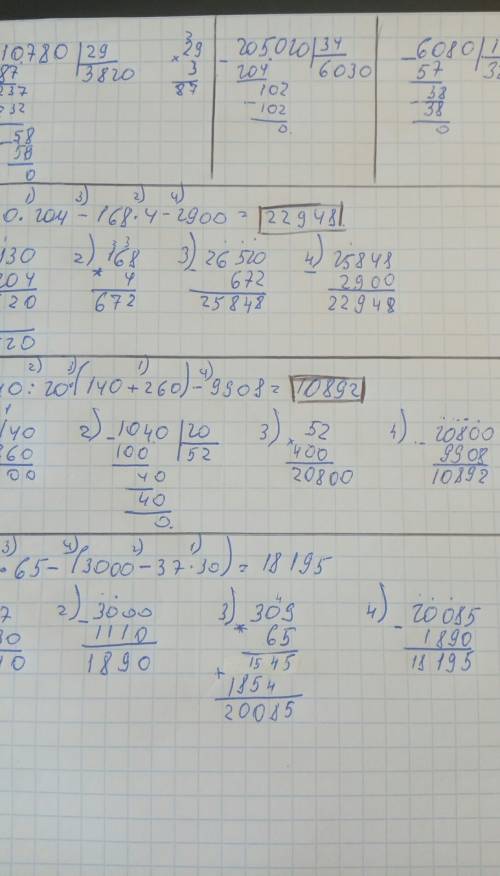 10780 | 29
87 3820
237
232
58
58
0
3
× 29
3
87
- 205020 | 34
204 6030
102
- 102
0
- 6080 | 1
57 32
- 38
38
0
1) 3) 2) 4)
0·204-168·4-2900= 22948
130
204
520
520
2) 168
× 4
672
3) - 26520
672
25848
4) - 25848
2900
22948
2) 3) 1) 4)
40:20·(140+260)-9908= 10892
140
260
00
2) - 1040 | 20
100 52
40
40
0.
3) × 52
400
20800
4) - 20800
9908
10892
3) 4) 2) 1)
·65-(3000-37·30)=18195
7
30
10
2) - 3000
1110
1890
3) × 309
65
1545
+
1854
20085
4) - 20085
1890
18195